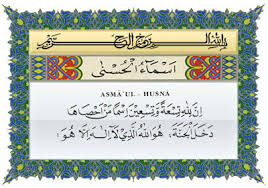 بسم الله الرحمن الرحيم
اَسْمَاءُ الْحُسْنٰى
ASMÂ'UL - HUSNÂ
اِنَّ لِلّٰهِ تِسْعَةً وَتِسْعِينَ اِسْمًا مَنْ اَحْصَاهَا
دَخَلَ الْجَنَّةَ، هُوَ اللّٰهُ الَّذِي لَا اِلٰهَ اِلَّا هُوَ :